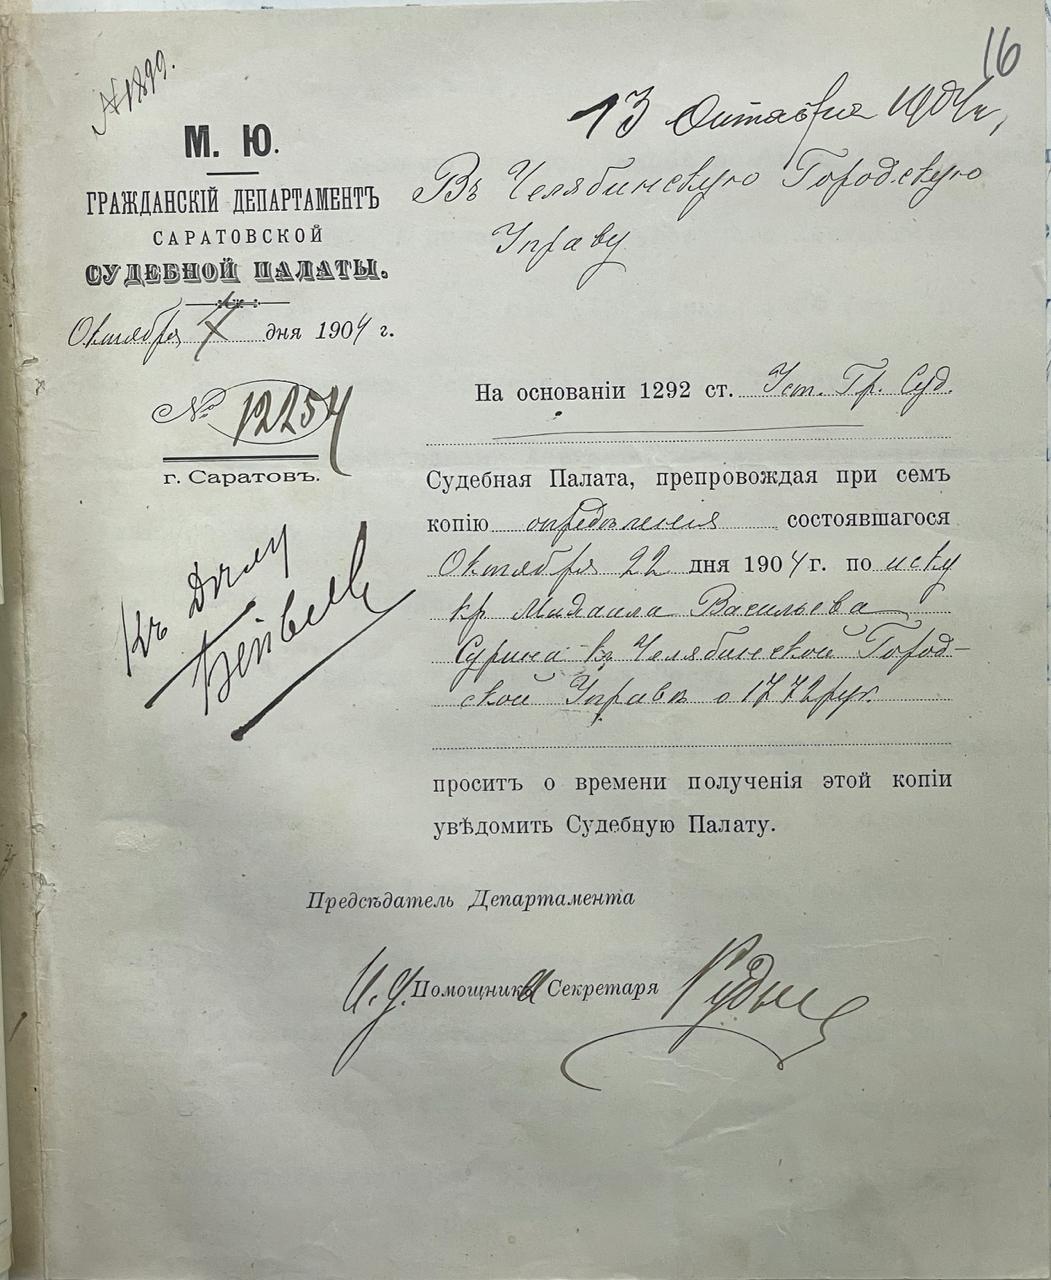 16
№ 1899.
13 Октября 1904 г.,
М. Ю.
ГРАЖДАНСКІЙ ДЕПАРТАМЕНТЪ
САРАТОВСКОЙ
СУДЕБНОЙ ПАЛАТЫ.
Октября дня 1904 г.
№ 12254
г. Саратовъ.
Въ Челябинскую Городскую
Управу
На основаніи 1292 ст. Уст. Гр. Суд.
Судебная Палата, препровождая при семъ
копію опредѣленія состоявшагося
Октября 22 дня 1904 г. по иску
кр. Михаила Васильева
Сурина къ Челябинской Город-
ской Управѣ о 1772 руб.
проситъ о времени полученія этой копіи
увѣдомить Судебную Палату.
Къ дѣлу
Предсѣдатель Департамента
И. д. Помощника Секретаря